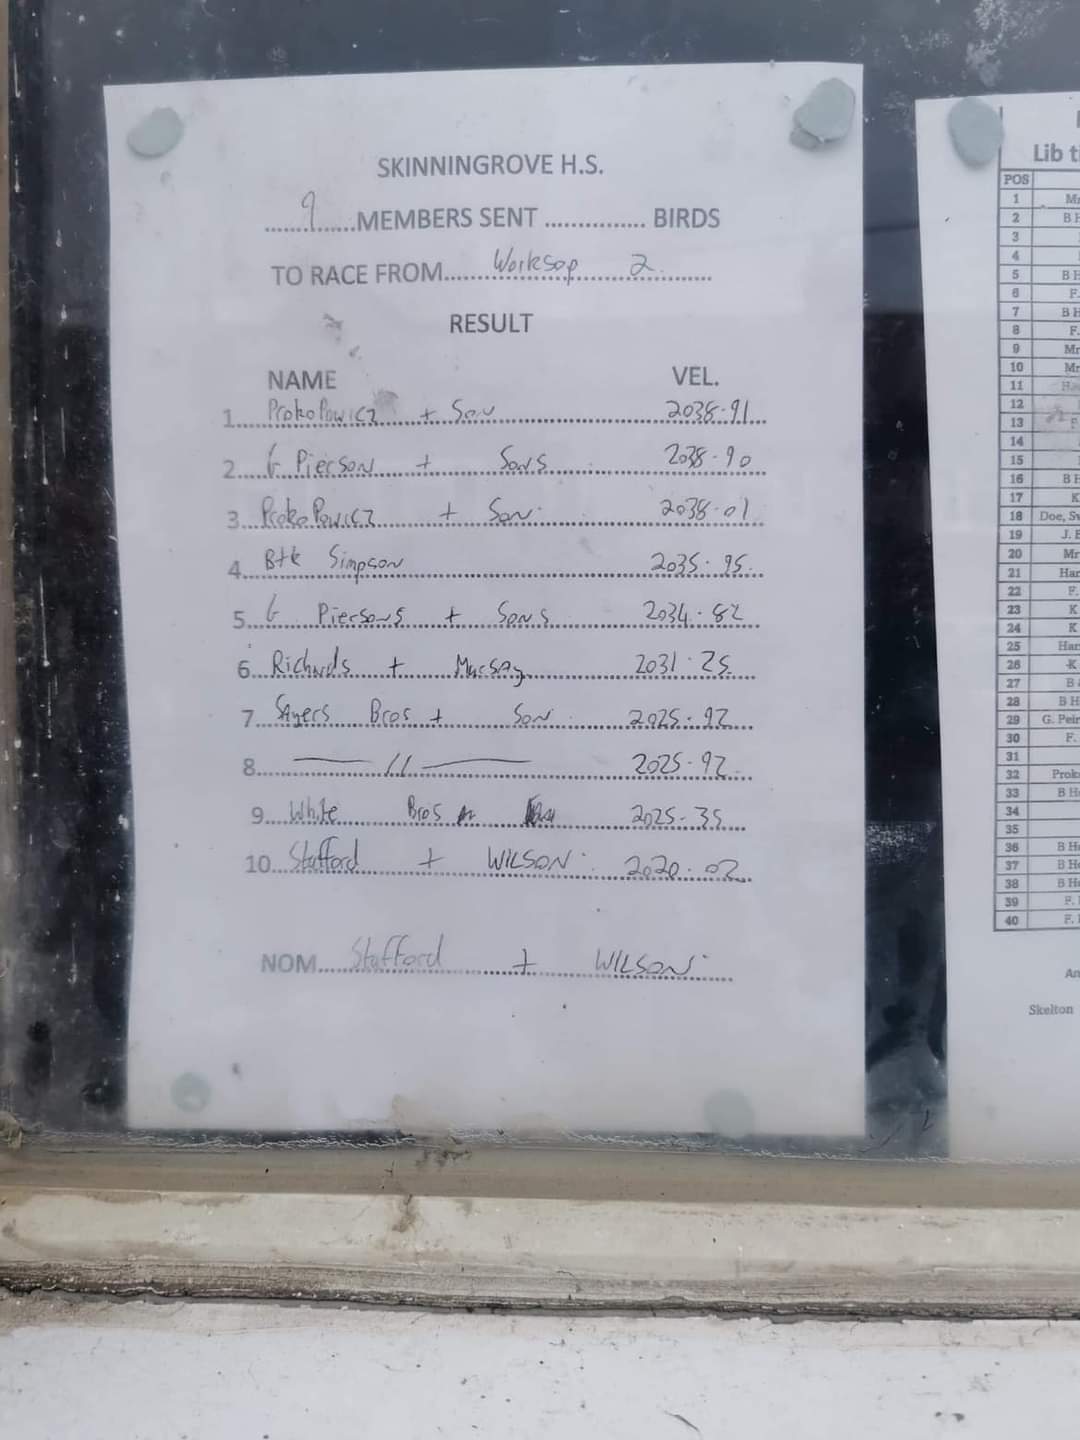 SKINNINGROVE H.S.
9 MEMBERS SENT ............... BIRDS
TO RACE FROM Worksop 2
RESULT
NAME VEL.
1. Prokopowicz + Son 2038.91
2. G Pierson + Sons 2038.90
3. Prokopowicz + Son 2038.01
4. B+K Simpson 2035.95
5. G Piersons + Sons 2034.82
6. Richards + 2031.25
7. Sayers Bros + Son 2025.92
8. —— 11 —— 2025.92
9. White Bros 2025.35
10. Stafford + WILSON 2020.02
NOM Stafford + WILSON
Lib ti
POS
1 Mr
2 B H
3
4
5 B H
6 F.
7 B H
8 F.
9 Mr
10 Mr
11 Ha
12
13 F
14
15
16 B H
17 K
18 Doe, Sw
19 J. E
20 Mr
21 Har
22 F.
23 K
24 K
25 Har
26 K
27 B
28 B H
29 G. Peir
30 F.
31
32 Prok
33 B H
34
35
36 B H
37 B H
38 B H
39 F.
40 F.
An
Skelton